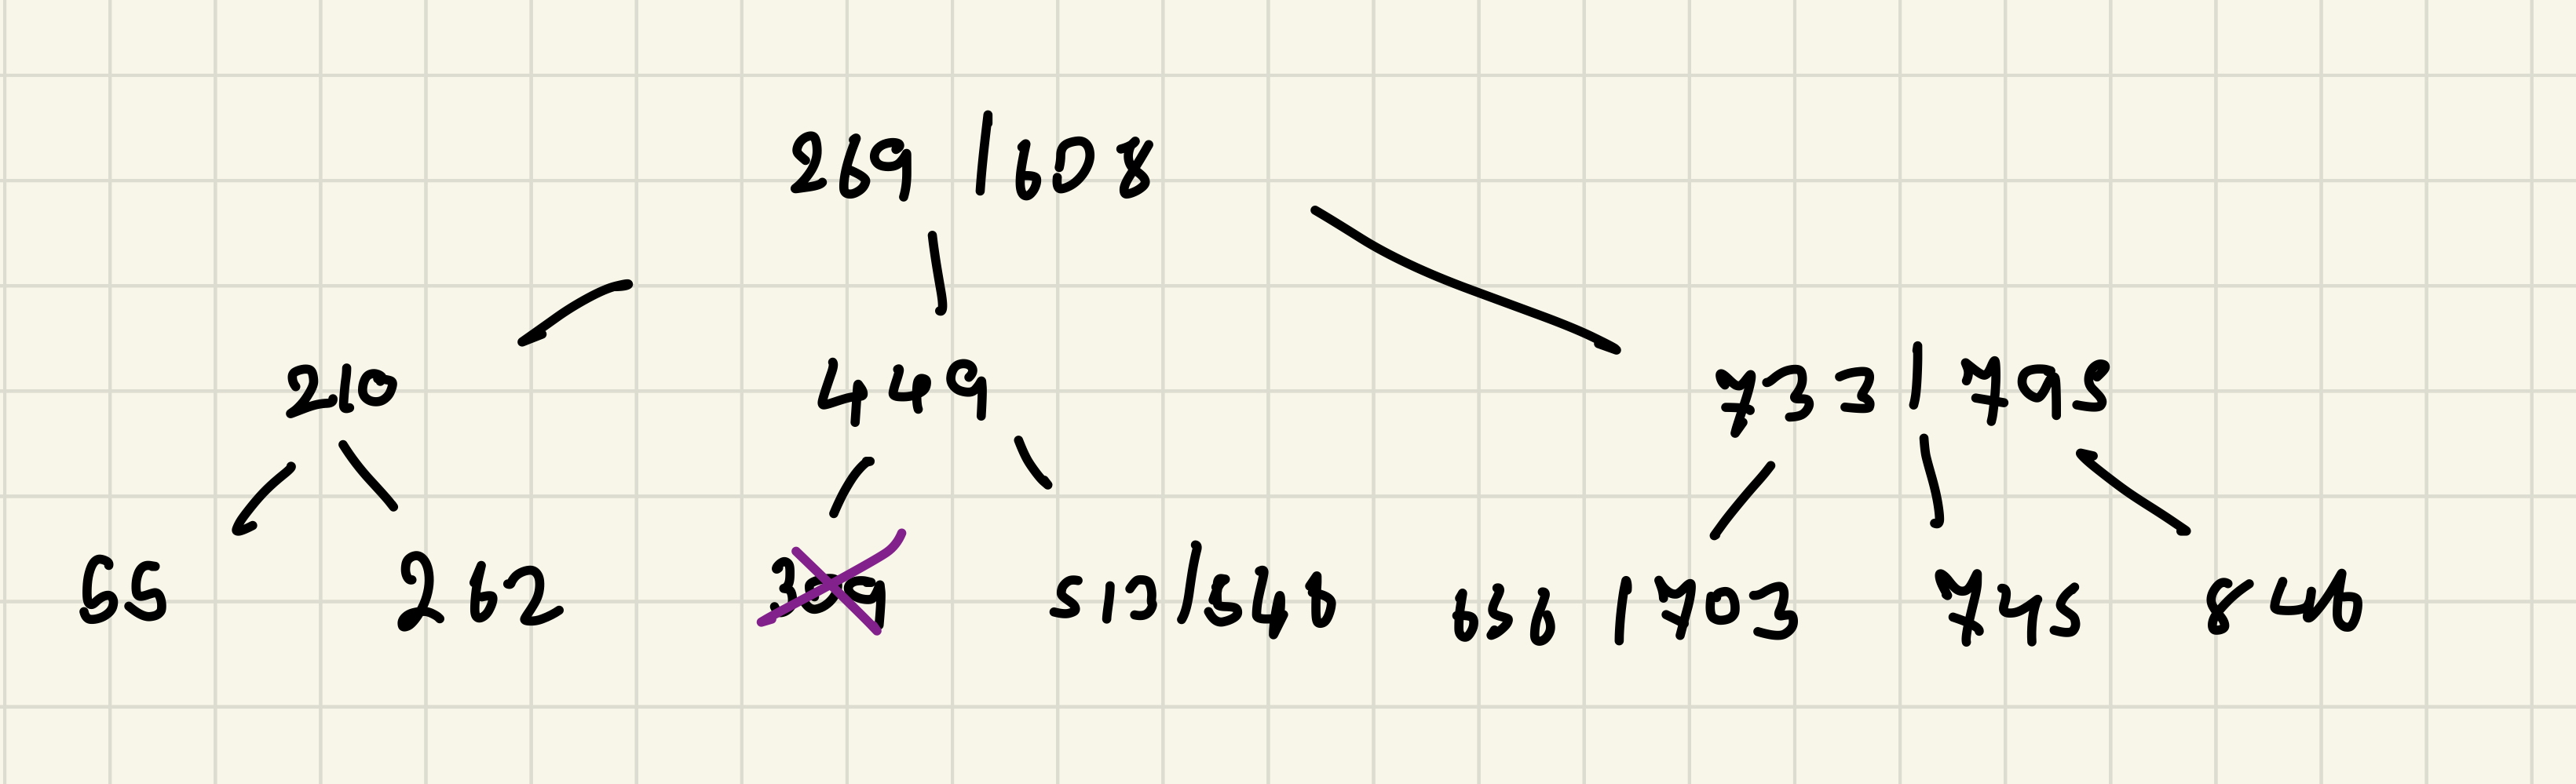 269 | 608
210 449 733 | 795
55 262 309 513/546 656 | 703 745 846